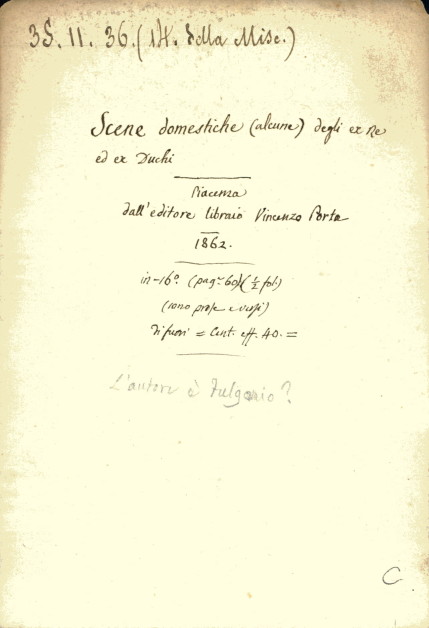 35. 11. 36. (14. della Misc.)
Scene domestiche (alcune) degli ex Re
ed ex Duchi
Piacenza
dall'editore libraio Vincenzo Porta
1862.
in-16º (pagº 60) (½ fol.)
(sono prose e versi)
Di fuori = Cent. eff. 40. =
L'autore è Fulgonio?
C